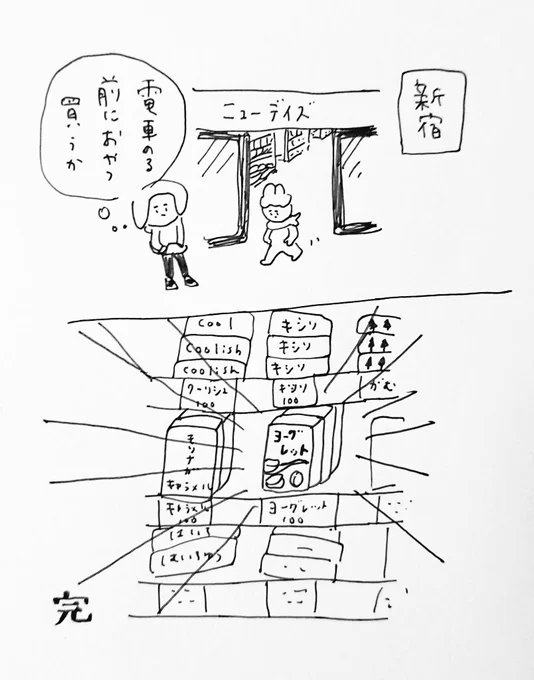 新宿
ニューデイズ
電車のる
前におやつ
買うか
cool
キシソ
coolish
キシソ
coolish
キシソ
クーリシュ
100
キシソ
100
がむ
モリナガ
キャラメル
ヨーグ
レット
キャラメル
100
ヨーグレット
100
はいち
はいちゅう
完